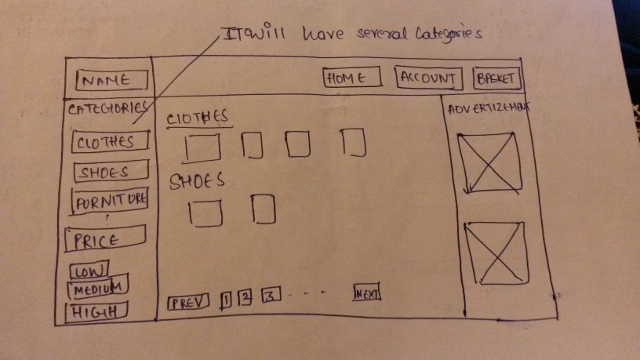 ITWill have several Categories
NAME
HOME
ACCOUNT
BASKET
CATEGORIES
CLOTHES
SHOES
FURNITURE
PRICE
LOW
MEDIUM
HIGH
CLOTHES
SHOES
PREV 1 2 3 . . . . NEXT
ADVERTIZEMENT